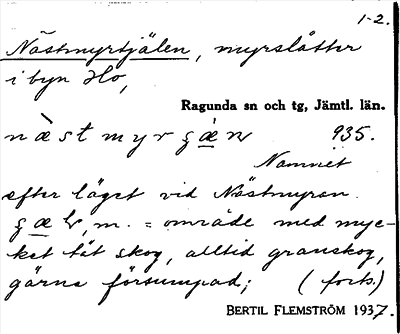 1-2.
Nästmyrtjälen, myrslåtter
i byn Ho,
Ragunda sn och tg, Jämtl. län.
935.
Namnet
efter läget vid Nästmyran.
m. = område med myc-
ket tät skog, alltid granskog,
gärna försumpad; (forts.)
BERTIL FLEMSTRÖM 1937.